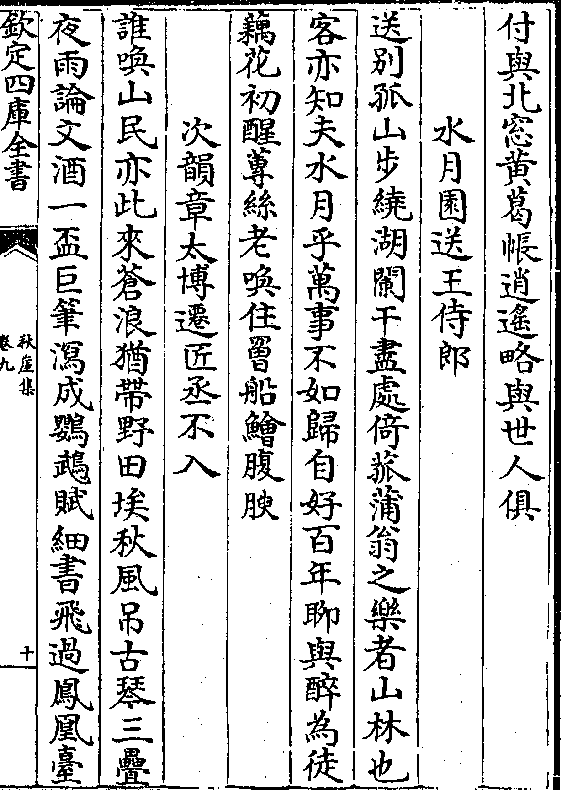 付與北窓黄葛帳逍遙略與世人俱
水月園送王侍郎
送别孤山步繞湖闌干盡處倚菰蒲翁之樂者山林也
客亦知夫水月乎萬事不如歸自好百年聊與醉為徒
藕花初醒蓴絲老喚住罾船鱠腹腴
次韻章太博遷匠丞不入
誰喚山民亦此來蒼浪猶帶野田埃秋風吊古琴三疊
夜雨論文酒一盃巨筆瀉成鸚鵡賦細書飛過鳳凰臺
欽定四庫全書
秋崖集
卷九
十